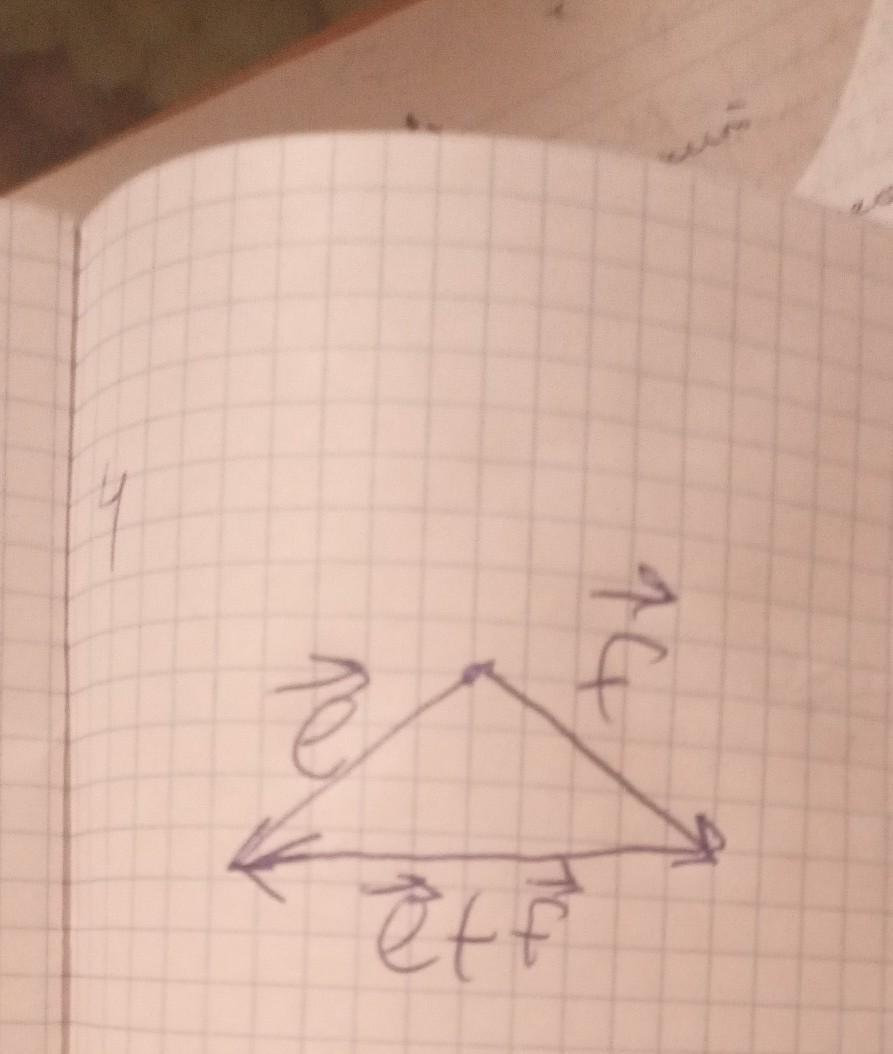 4
→f
→e
→e+→f